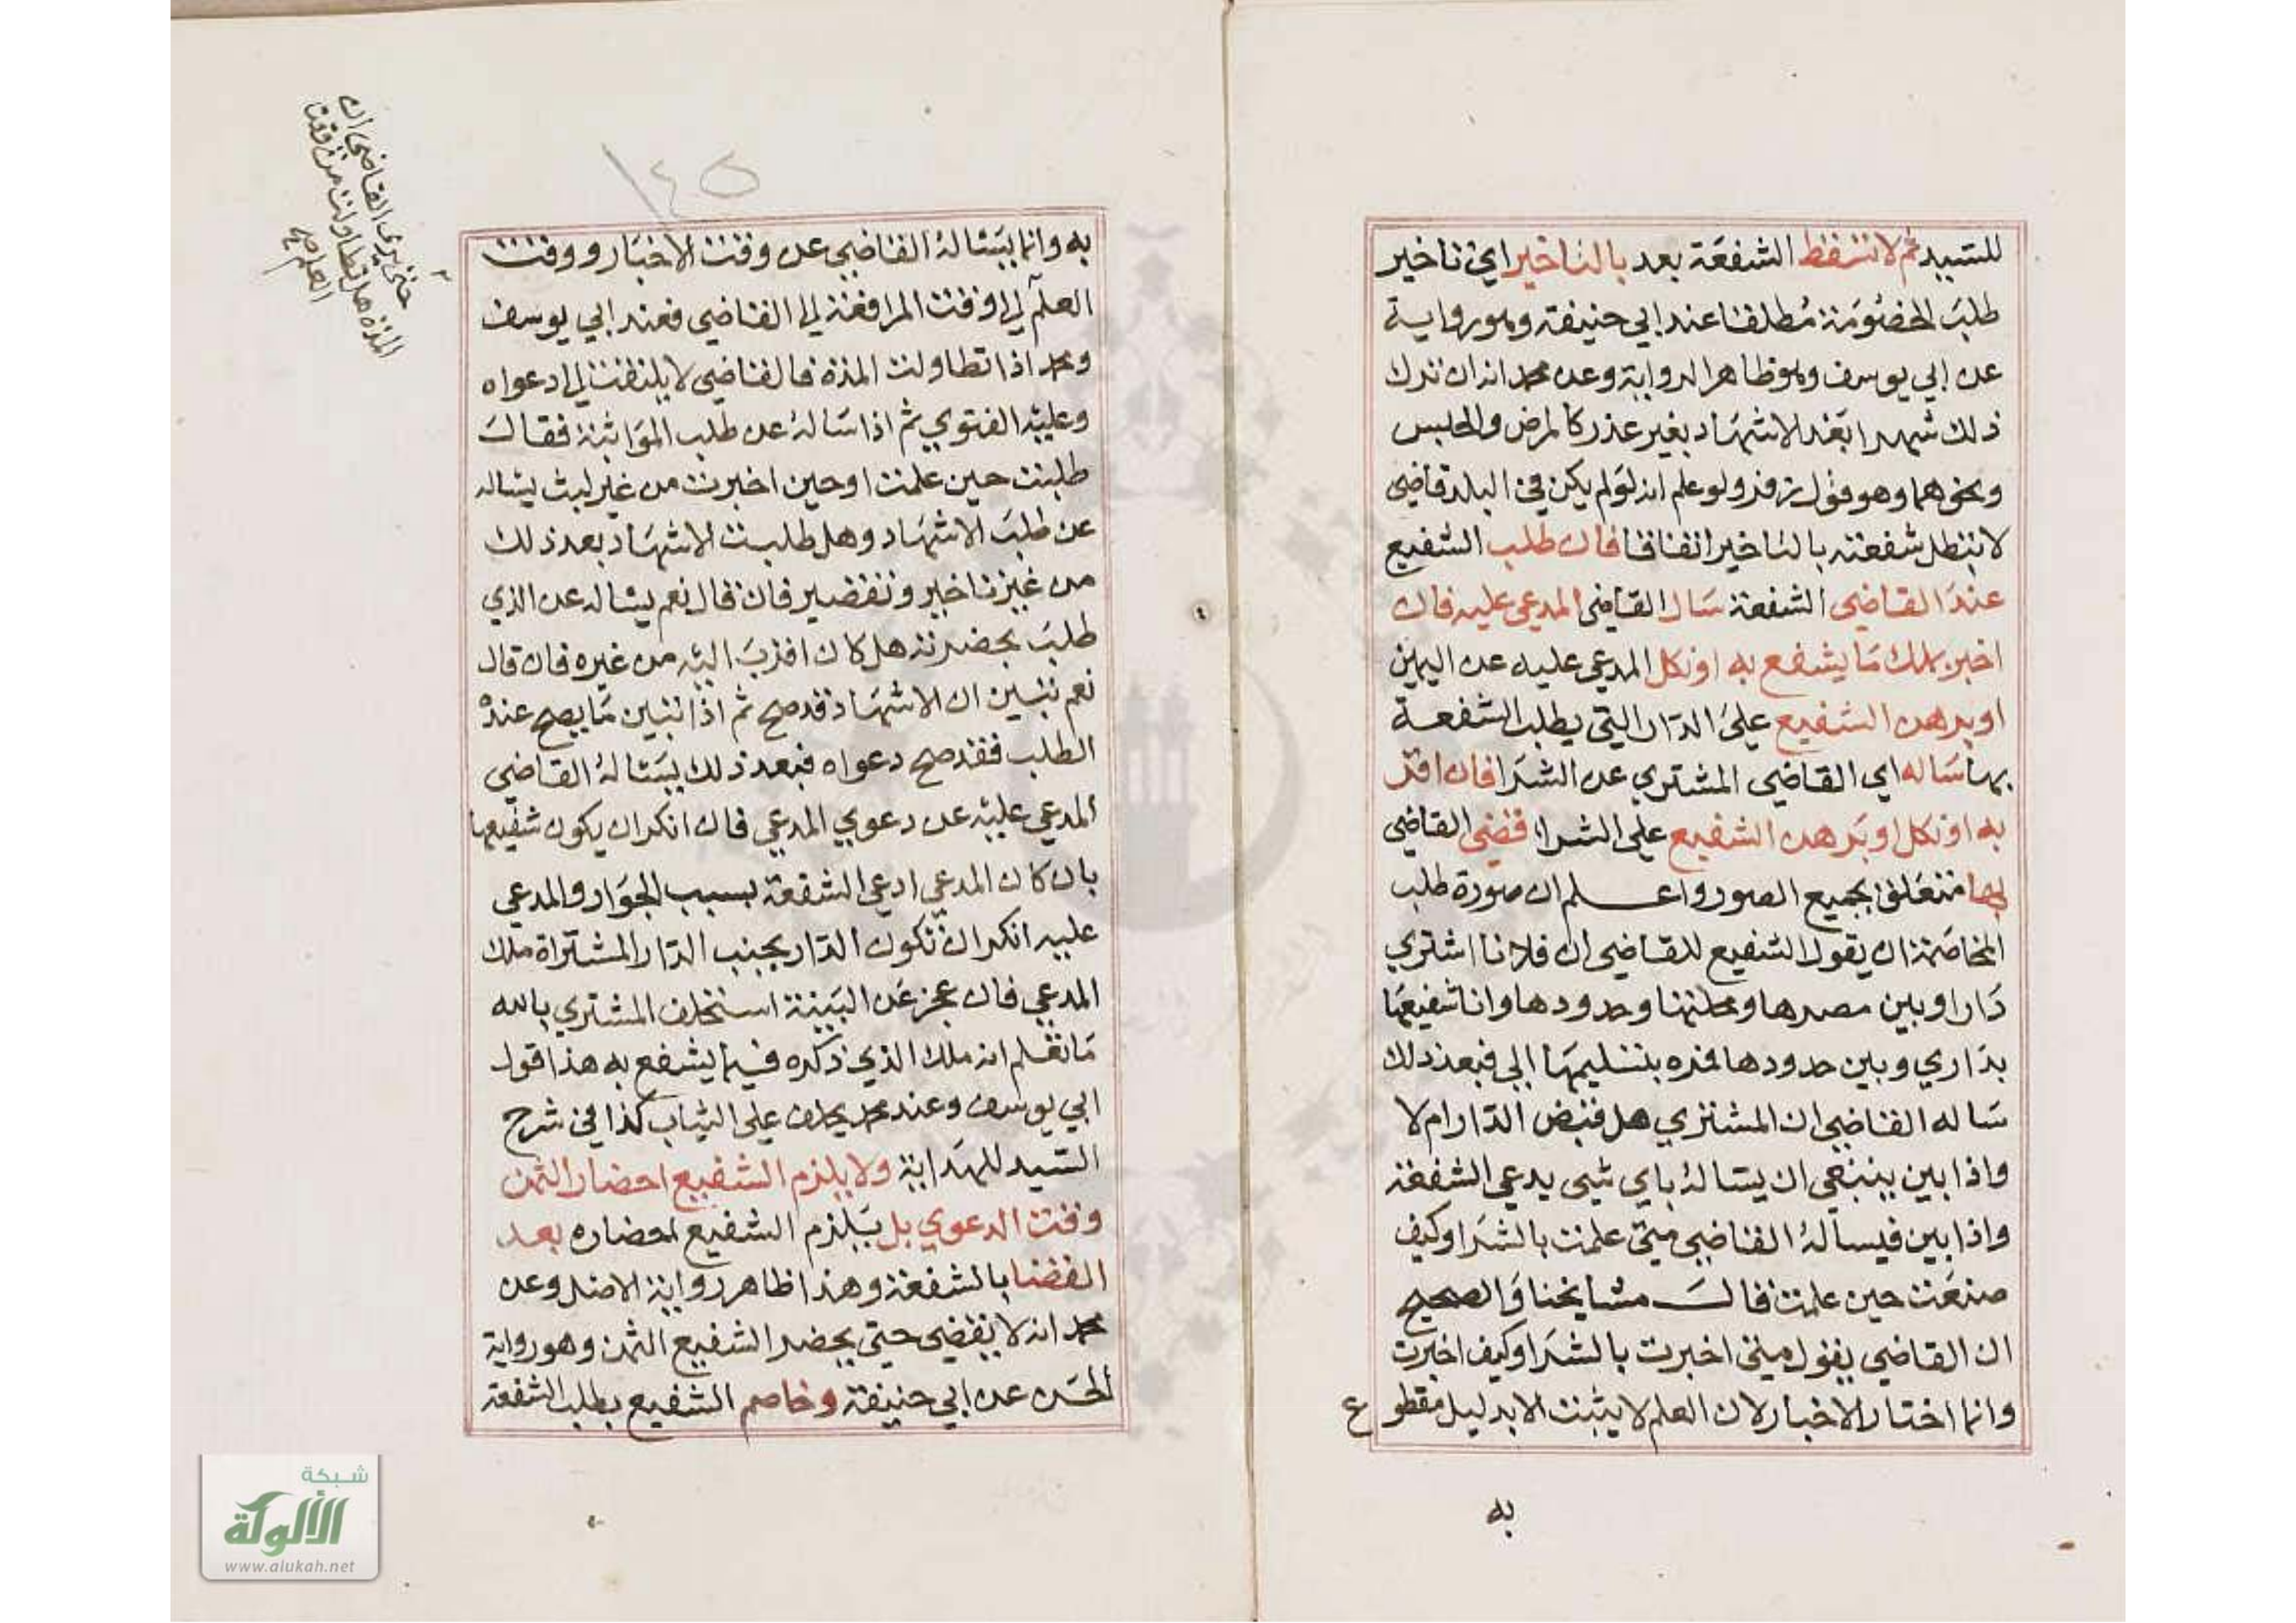 للسيد ثم لا تسقط الشفعة بعد بالتاخير اي تاخير
طلب الخصومة مطلقا عند ابي حنيفة وهو رواية
عن ابي يوسف وهو ظاهر الرواية وعن محمد انه ان ترك
ذلك شهرا بعد الاشهاد بغير عذر كالمرض والحبس
ونحوهما وهو قول زفر ولو علم انه لو لم يكن في البلد قاضي
لا تبطل شفعته بالتاخير اتفاقا فان طلب الشفيع
عند القاضي الشفعة سال القاضي المدعي عليه فان
اخبر بملك ما يشفع به او نكل المدعي عليه عن اليمين
او برهن الشفيع علي الدار التي يطلب الشفعة
بها ساله اي القاضي المشتري عن الشرا فان اقر
به او نكل او برهن الشفيع علي الشرا قضي القاضي
بها متعلق بجميع الصور واعلم ان صورة طلب
المخاصمة ان يقول الشفيع للقاضي ان فلانا اشتري
دارا وبين مصرها ومحلتها وحدودها وانا شفيعها
بداري وبين حدودها فمره بتسليمها الي فبعد ذلك
ساله القاضي ان المشتري هل قبض الدار ام لا
واذا بين ينبغي ان يساله باي شيى يدعي الشفعة
واذا بين فيساله القاضي متي علمت بالشرا وكيف
صنعت حين علمت قالـــ مشايخنا والصحيح
ان القاضي يقول متي اخبرت بالشرا وكيف اخبرت
وانما اختار الاخبار لان العلم لا يثبت الا بدليل مقطوع
به
١٤٥
به وانما يساله القاضي عن وقت الاخبار ووقت
العلم الي وقت المرافعة الي القاضي فعند ابي يوسف
ومحمد اذا تطاولت المدة فالقاضي لا يلتفت الي دعواه
وعليه الفتوي ثم اذا ساله عن طلب المواثبة فقالــ
طلبت حين علمت او حين اخبرت من غير لبث يساله
عن طلب الاشهاد وهل طلبت الاشهاد بعد ذلك
من غير تاخير وتقصير فان قال نعم يساله عن الذي
طلب بحضرته هل كان اقرب اليه من غيره فان قال
نعم تبين ان الاشهاد قد صح ثم اذا تبين ما يصح عنده
الطلب فقد صح دعواه فبعد ذلك يساله القاضي
المدعي عليه عن دعوي المدعي فان انكر ان يكون شفيعها
بان كان المدعي ادعي الشفعة بسبب الجوار والمدعي
عليه انكر ان تكون الدار بجنب الدار المشتراة ملك
المدعي فان عجز عن البينة استخلف المشتري بالله
ما تعلم انه ملك الذي ذكره فيما يشفع به هذا قول
ابي يوسف وعند محمد يحلف علي الثياب كذا في شرح
السيد للهداية ولا يلزم الشفيع احضار الثمن
وقت الدعوي بل يلزم الشفيع احضاره بعد
القضا بالشفعة وهذا ظاهر رواية الاصل وعن
محمد انه لا يقضي حتي يحضر الشفيع الثمن وهو رواية
الحسن عن ابي حنيفة وخاصم الشفيع بطلب الشفعة
حتي يري القاضي ان
المدة هل تطاولت من وقت
العلم صح
شبكة
الألوكة
www.alukah.net